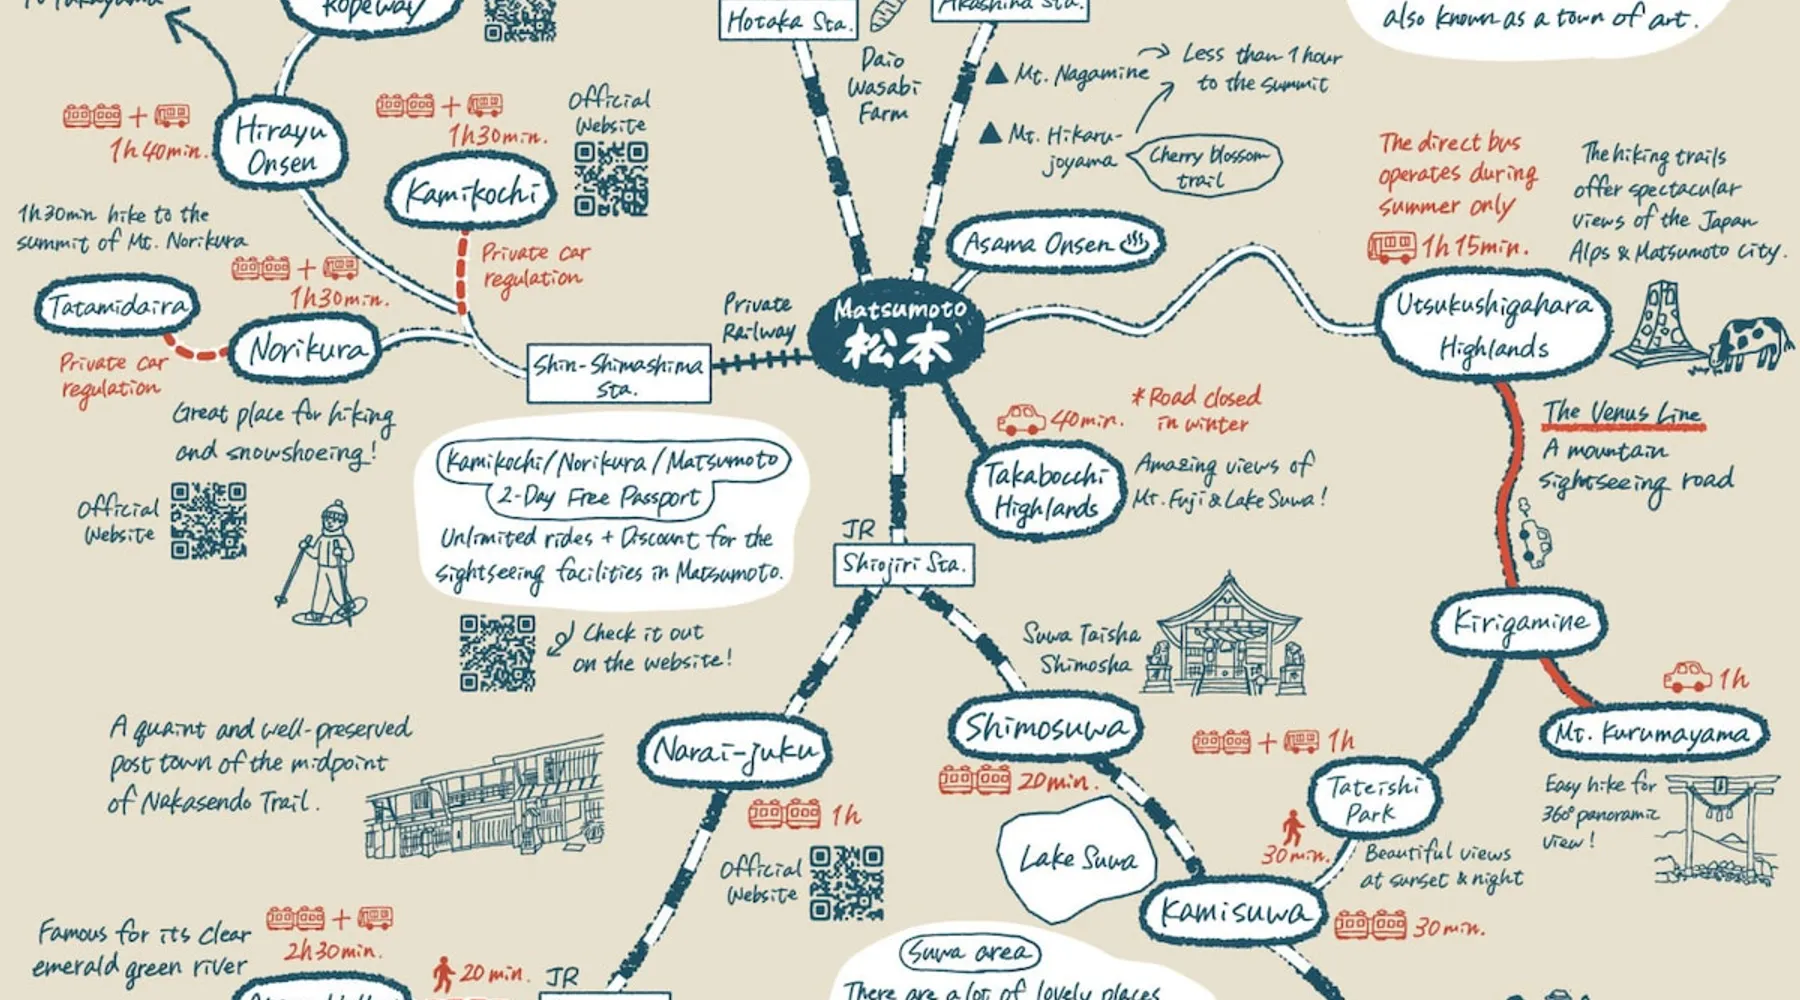 To Takayama
Ropeway
Hotaka Sta.
Akashina Sta.
Daio
Wasabi
Farm
Mt. Nagamine
Less than 1 hour
to the summit
Mt. Hikaru-
joyama
Cherry blossom
trail
also known as a town of art.
1h40min.
Hirayu
Onsen
1h30min.
Kamikochi
Official
Website
Private car
regulation
1h30min hike to the
summit of Mt. Norikura
1h30min.
Tatamidaira
Norikura
Private car
regulation
Great place for hiking
and snowshoeing!
Official
Website
Shin-Shimashima
Sta.
Private
Railway
Matsumoto
松本
Asama Onsen
The direct bus
operates during
summer only
1h15min.
The hiking trails
offer spectacular
views of the Japan
Alps & Matsumoto City.
Utsukushigahara
Highlands
The Venus Line
A mountain
sightseeing road
40min.
*Road closed
in winter
Takabocchi
Highlands
Amazing views of
Mt. Fuji & Lake Suwa!
Kamikochi/Norikura/Matsumoto
2-Day Free Passport
Unlimited rides + Discount for the
sightseeing facilities in Matsumoto.
Check it out
on the website!
JR
Shiojiri Sta.
Suwa Taisha
Shimosha
Kirigamine
1h
Mt. Kurumayama
Easy hike for
360° panoramic
view!
A quaint and well-preserved
post town of the midpoint
of Nakasendo Trail.
Narai-juku
1h
Official
Website
Shimosuwa
20min.
Lake Suwa
1h
Tateishi
Park
30min.
Beautiful views
at sunset & night
Kamisuwa
30min.
Famous for its clear
emerald green river
2h30min.
20min.
JR
Suwa area
There are a lot of lovely places